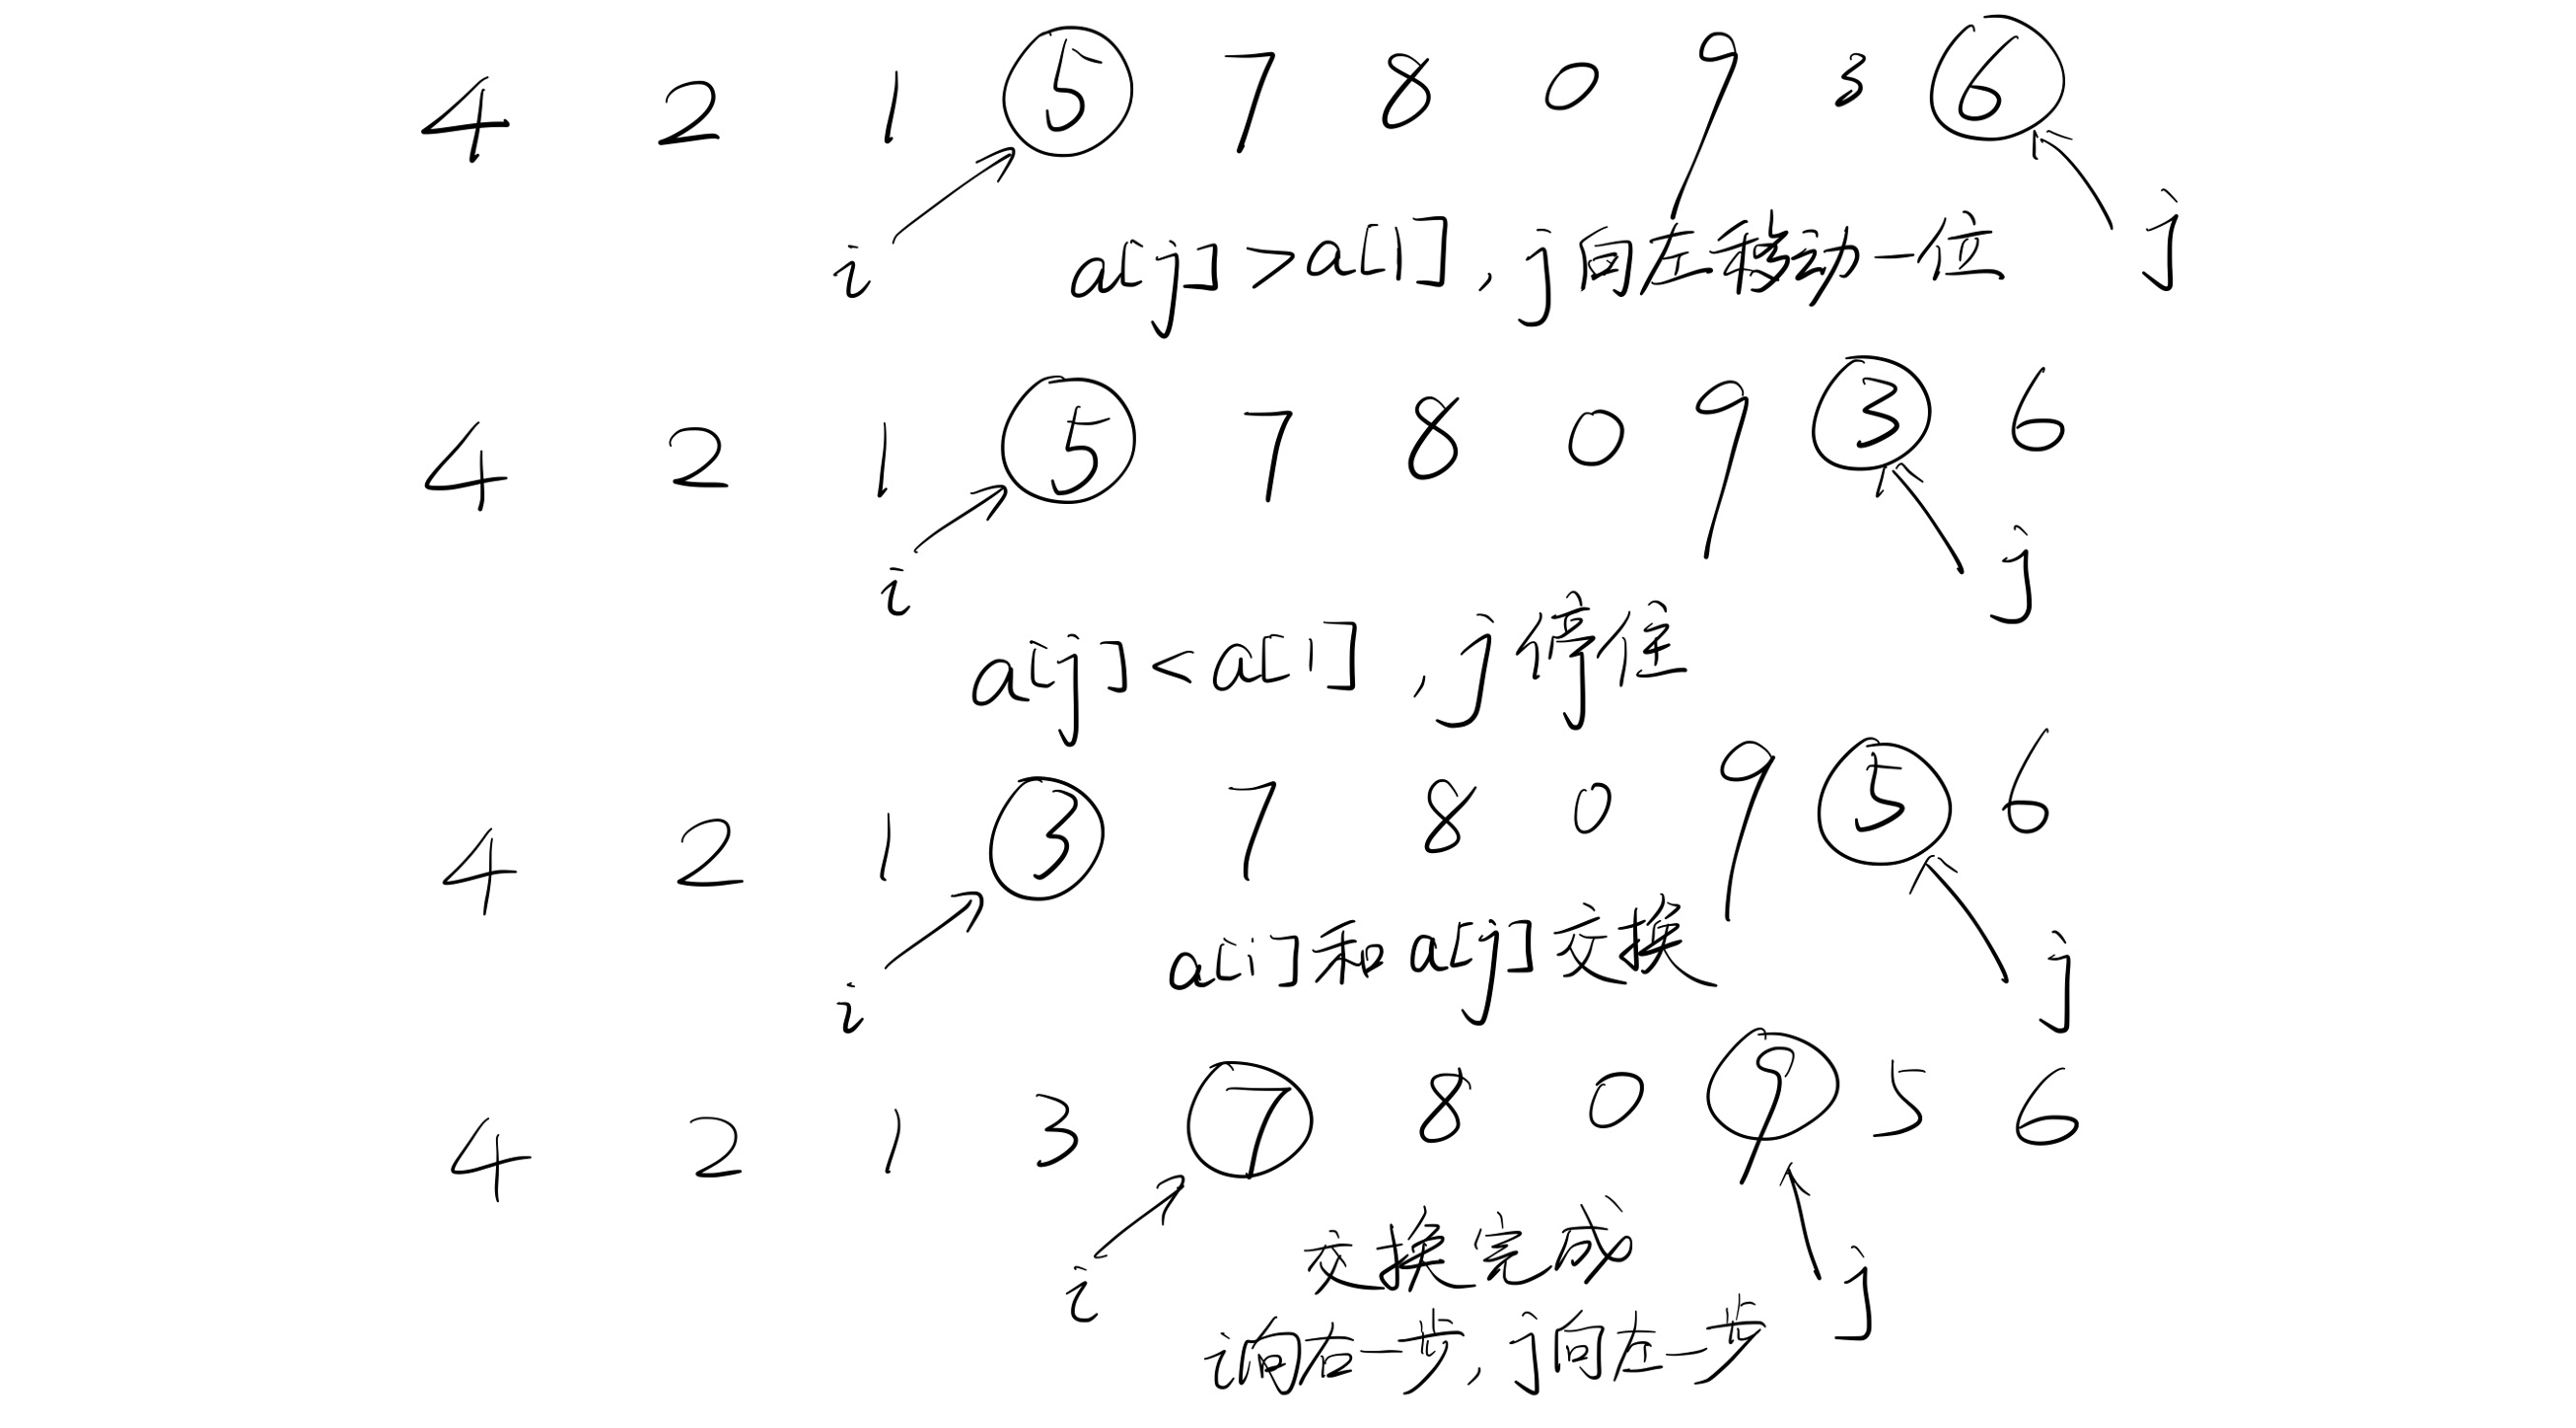 4 2 1 5 7 8 0 9 3 6
i a[j]>a[1],j向左移动一位 j
4 2 1 5 7 8 0 9 3 6
i j
a[j]<a[1],j停住
4 2 1 3 7 8 0 9 5 6
i a[i]和a[j]交换 j
4 2 1 3 7 8 0 9 5 6
i 交换完成 j
i向右一步,j向左一步